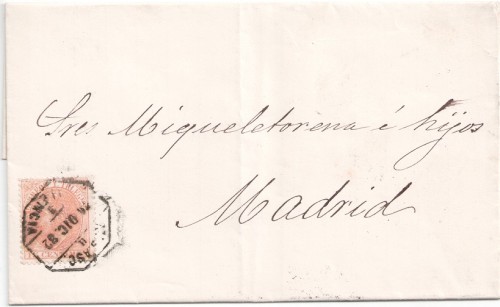 Sres Miqueletorena é hijos
Madrid
DIC 82